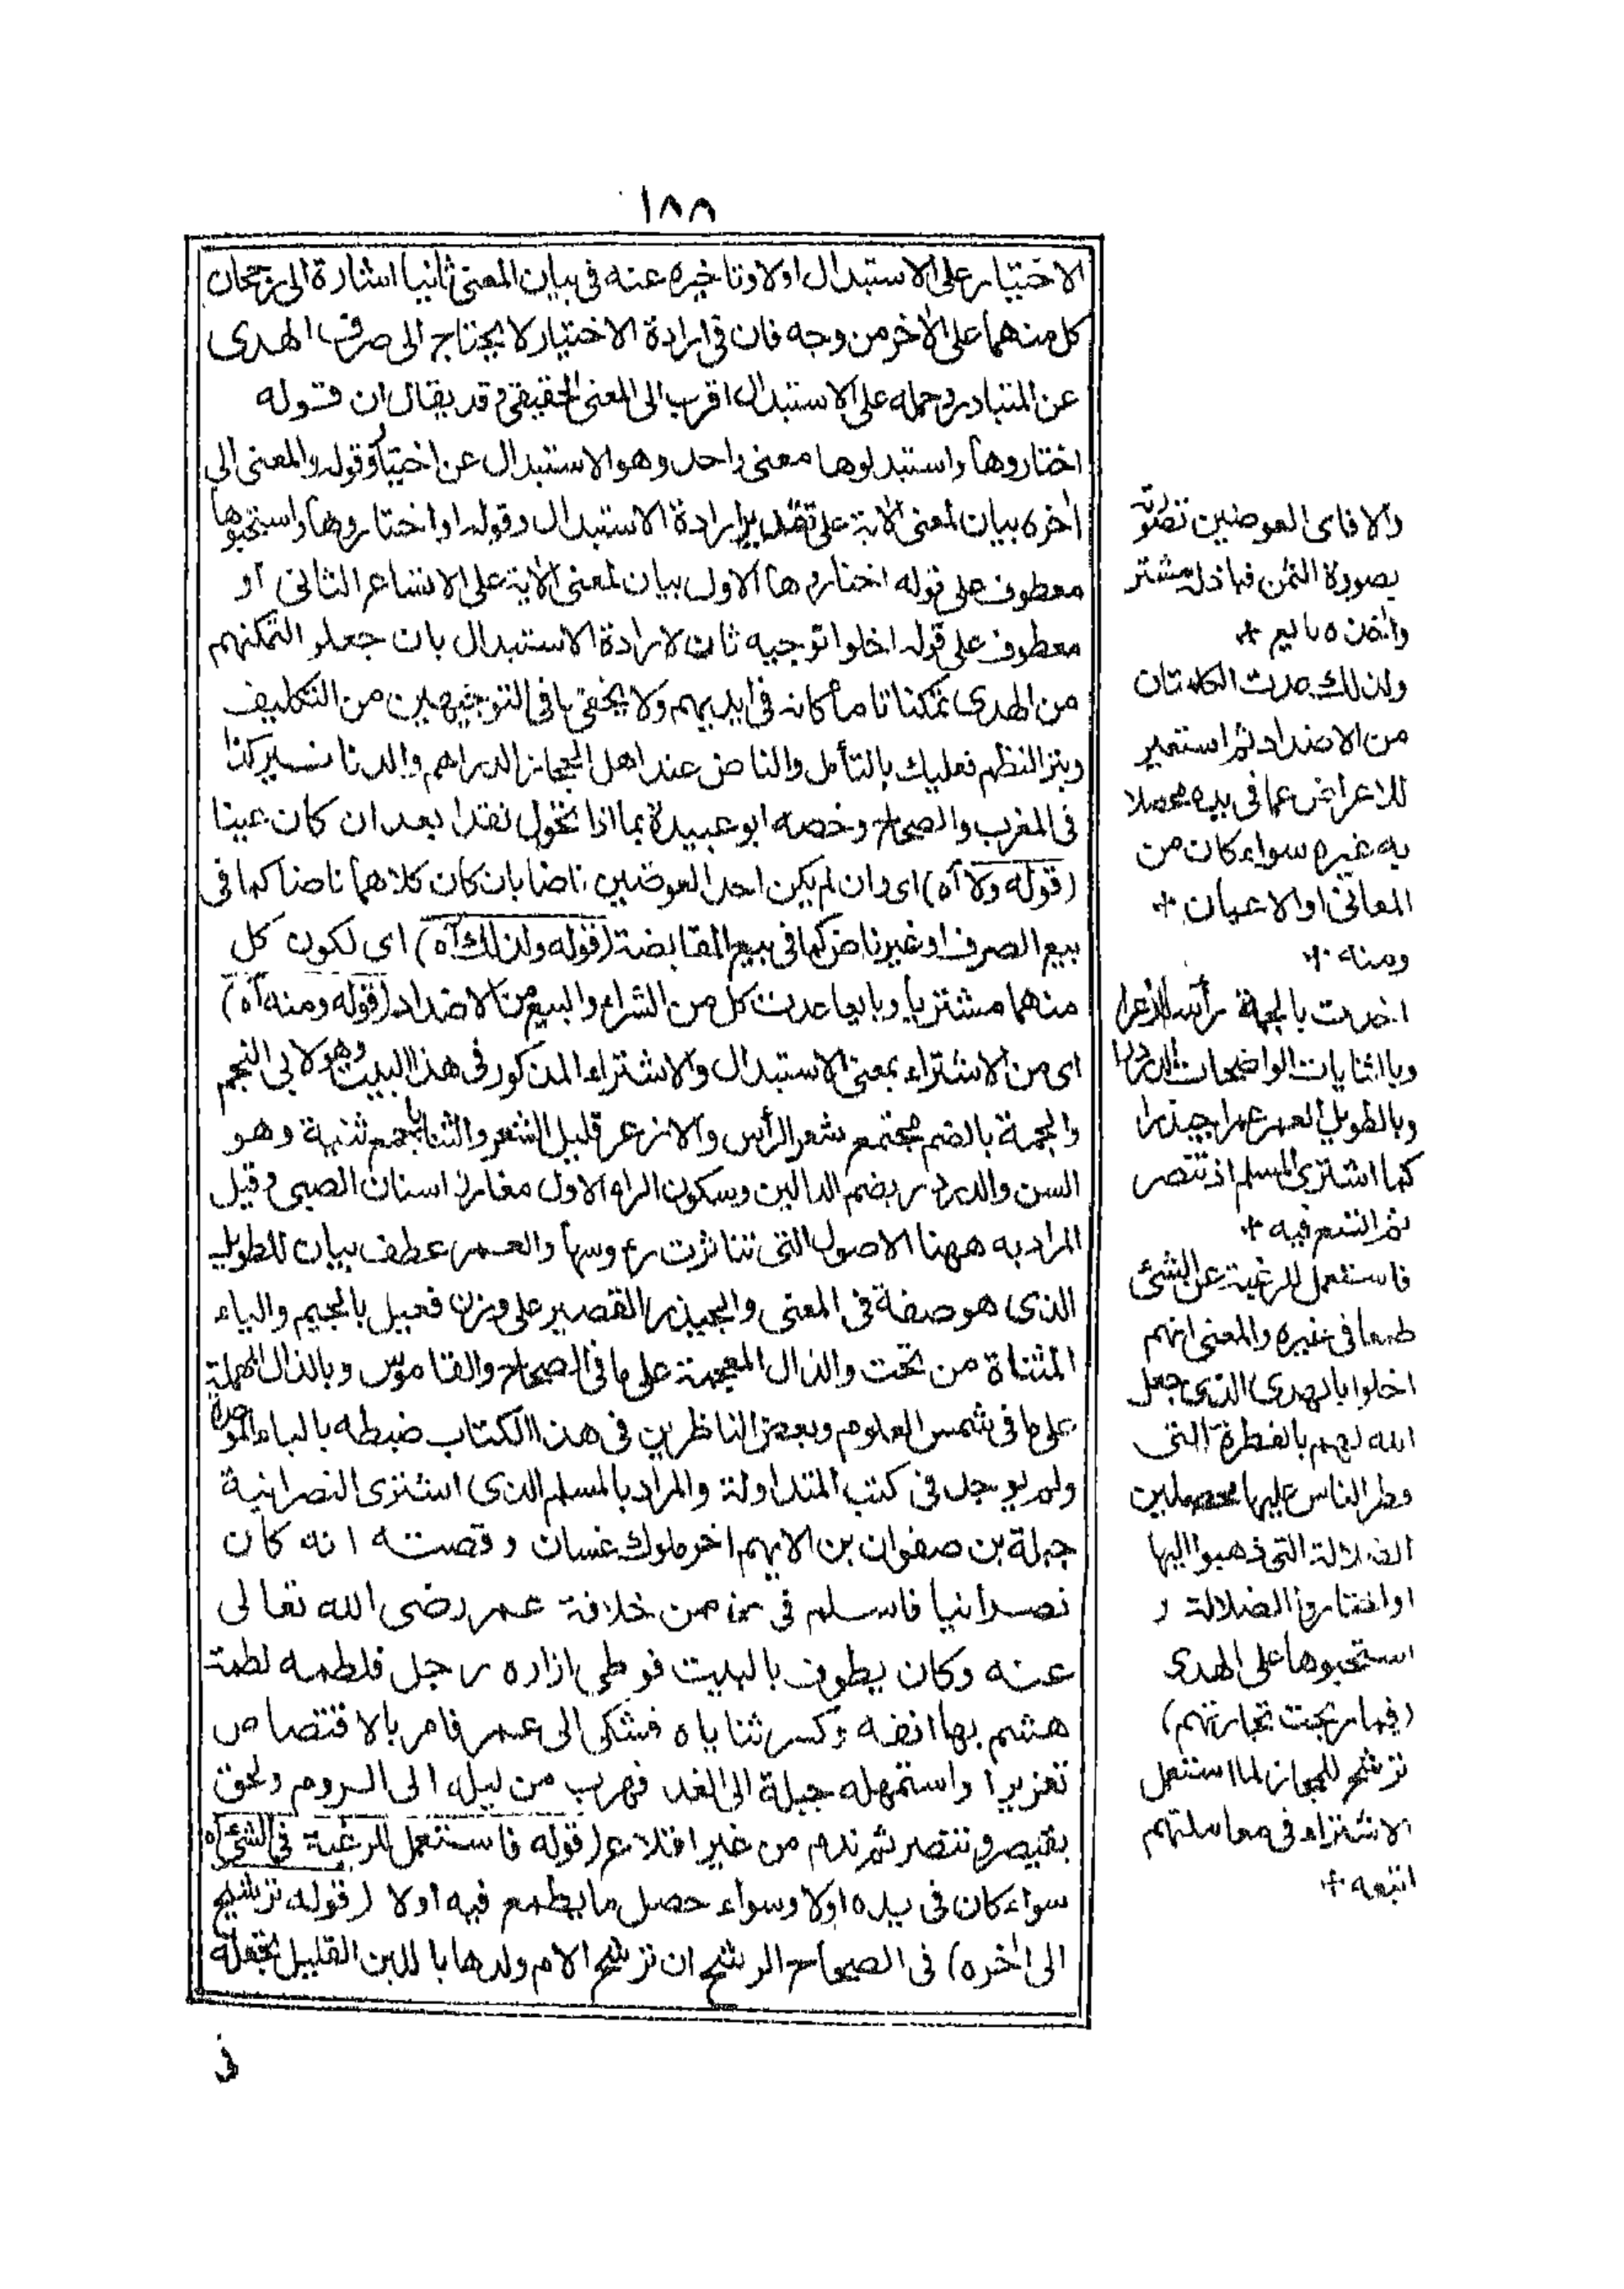 ١٨٨
الاختيار على الاستبدال اولا وتاخيره عنه فى بيان المعنى ثانيا اشارة الى رجحان
كل منهما على الاخر من وجه فان فى ارادة الاختيار لا يحتاج الى صرف الهدى
عن المتبادر وحمله على الاستبدال اقرب الى المعنى الحقيقى وقد يقال ان قوله
اختاروها واستبدلوها معنى واحد وهو الاستبدال عن اختيار وقوله والمعنى الى
اخره بيان لمعنى الاية على تقدير ارادة الاستبدال وقوله او اختاروها واستحبوها
معطوف على قوله اختاروها الاول بيان لمعنى الاية على الاتساع الثانى او
معطوف على قوله اخلوا توجيه ثان لارادة الاستبدال بان جعلوا لتمكنهم
من الهدى تمكنا تاما كانه فى ايديهم ولا يخفى ما فى التوجيهين من التكليف
وبتر النظم فعليك بالتأمل والناض عند اهل الحجاز الدراهم والدنانير كذا
فى المغرب والصحاح وخصه ابو عبيدة بما اذا تحول نقدا بعد ان كان عينا
(قوله ولا آه) اى وان لم يكن احد العوضين ناضا بان كان كلاهما ناضا كما فى
بيع الصرف او غير ناض كما فى بيع المقابضة (قوله ولذلك آه) اى لكون كل
منهما مشتريا وبايعا عدت كل من الشراء والبيع من الاضداد (قوله ومنه آه)
اى من الاشتراء بمعنى الاستبدال والاشتراء المذكور فى هذا البيت وهو لابى النجم
والجمة بالضم مجتمع شعر الرأس والازعر قليل الشعر والثنايا جمع ثنية وهو
السن والدردر بضم الدالين وسكون الراء الاول مغارز اسنان الصبى وقيل
المراد به ههنا الاصول التى تناثرت رءوسها والعمر عطف بيان للطويل
الذى هو صفة فى المعنى والجيذر القصير على وزن فعيل بالجيم والياء
المثناة من تحت والذال المعجمة على ما فى الصحاح والقاموس وبالدال المهملة
على ما فى شمس العلوم وبعض الناظرين فى هذا الكتاب ضبطه بالباء الموحدة
ولم يوجد فى كتب المتداولة والمراد بالمسلم الذى اشترى النصرانية
جبلة بن صفوان بن الايهم اخر ملوك غسان وقصته انه كان
نصرانيا فاسلم فى زمن خلافة عمر رضى الله تعالى
عنه وكان يطوف بالبيت فوطى ازاره رجل فلطمه لطمة
هشم بها انفه وكسر ثناياه فشكى الى عمر فامر بالاقتصاص
تعزيرا واستمهله جبلة الى الغد فهرب من ليله الى الروم ولحق
بقيصر وتنصر ثم ندم من غير اقلاع (قوله فاستعمل للرغبة فى الشئ آه
سواء كان فى يده اولا وسواء حصل ما يطمع فيه اولا (قوله ترشيح
الى اخره) فى الصحاح الترشيح ان ترشح الام ولدها باللبن القليل تجعله
فى
والا فاى العوضين تصورته
بصورة الثمن فباذله مشتر
واخذه بايع *
ولذلك عدت الكلمتان
من الاضداد ثم استعير
للاعراض عما فى يده محصلا
به غيره سواء كان من
المعانى او الاعيان *
ومنه *
اخذت بالجمة رأسا ازعرا
وبالثنايات الواضحات الدردرا
وبالطويل العمر عمرا جيذرا
كما اشترى المسلم اذ تنصر
ثم اتسع فيه *
فاستعمل للرغبة عن الشئ
طمعا فى غيره والمعنى انهم
اخلوا بالهدى الذى جعل
الله لهم بالفطرة التى
فطر الناس عليها محصلين
الضلالة التى ذهبوا اليها
او اختاروا الضلالة و
استحبوها على الهدى
(فما ربحت تجارتهم)
ترشيح للمجاز لما استعمل
الاشتراء فى معاملتهم
اتبعه *